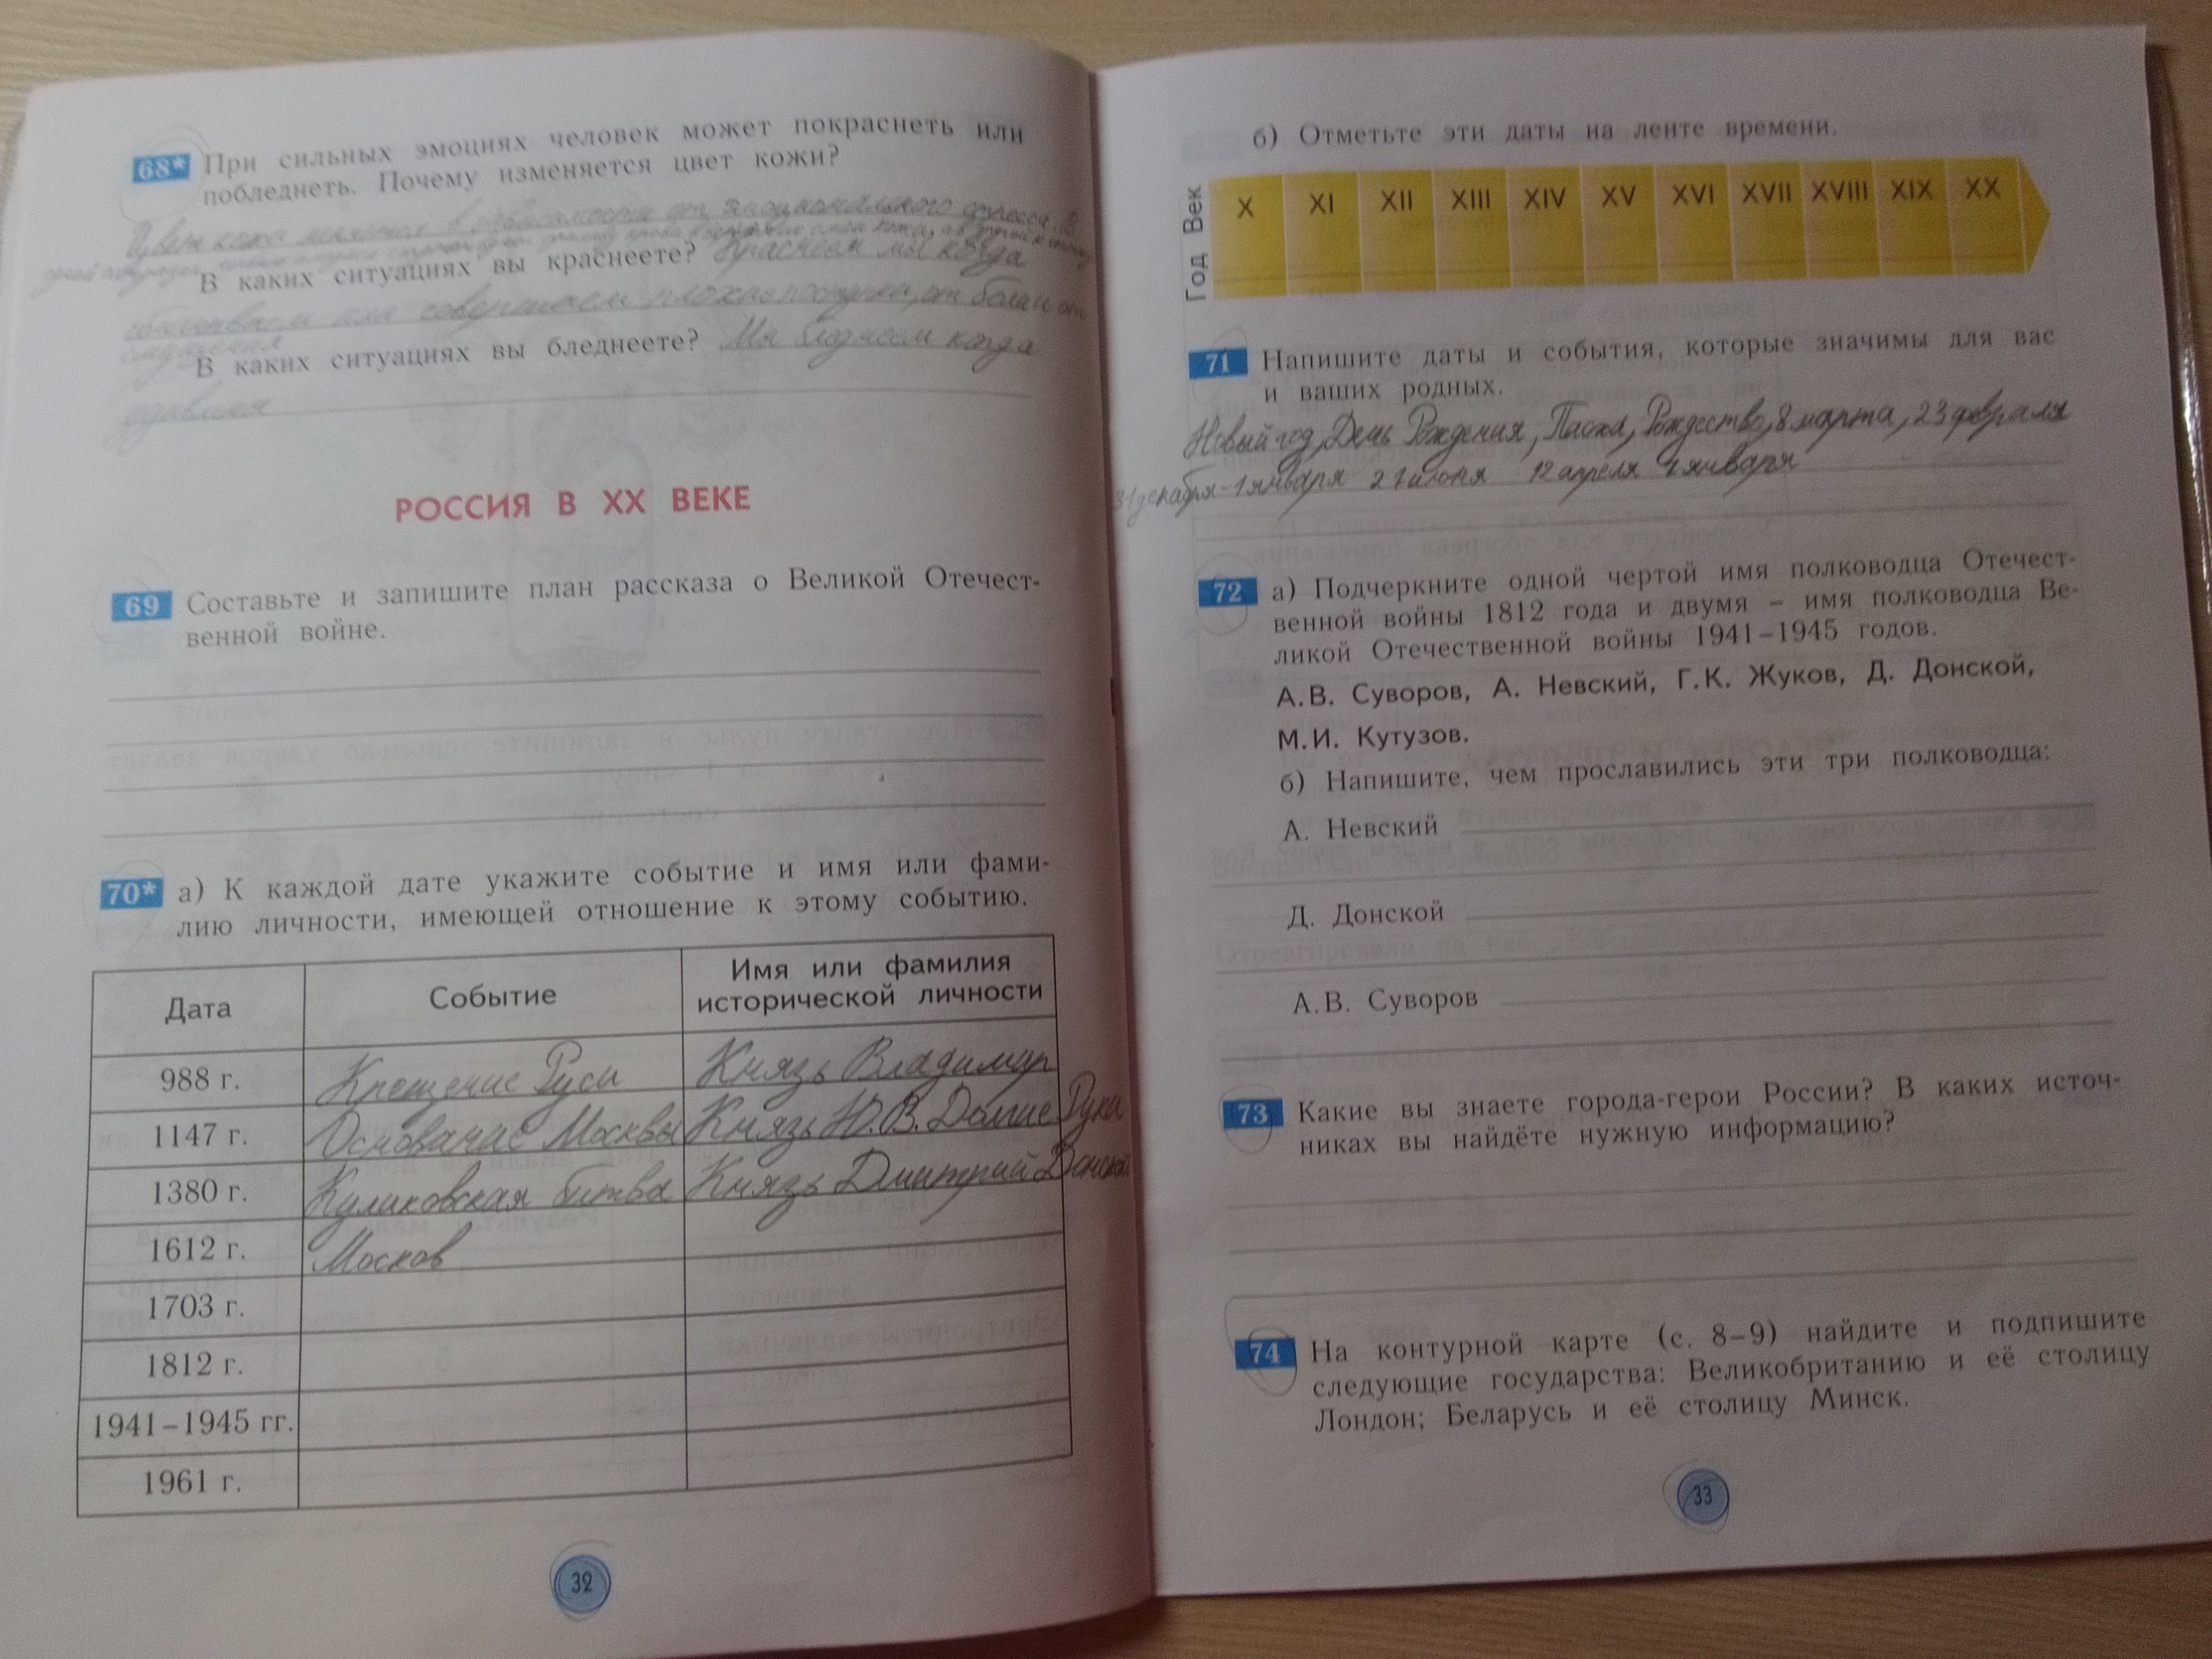 68* При сильных эмоциях человек может покраснеть или
побледнеть. Почему изменяется цвет кожи?
Цвет кожи меняется в зависимости от эмоционального стресса. В
В каких ситуациях вы краснеете? Краснеем мы когда
или совершаем от боли и от
смущения
В каких ситуациях вы бледнеете? Мы бледнеем когда
РОССИЯ В XX ВЕКЕ
69 Составьте и запишите план рассказа о Великой Отечест-
венной войне.
70* а) К каждой дате укажите событие и имя или фами-
лию личности, имеющей отношение к этому событию.
Дата Событие Имя или фамилия
исторической личности
988 г. Крещение Руси Князь Владимир
1147 г. Основание Москвы Князь Ю.В. Долгие Руки
1380 г. Куликовская битва Князь Дмитрий Донской
1612 г. Москов
1703 г.
1812 г.
1941–1945 гг.
1961 г.
32
б) Отметьте эти даты на ленте времени.
Век X XI XII XIII XIV XV XVI XVII XVIII XIX XX
Год
71 Напишите даты и события, которые значимы для вас
и ваших родных.
Новый год, День Рождения, Пасха, Рождество, 8 марта, 23 февраля
31 декабря-1 января 21 июня 12 апреля января
72 а) Подчеркните одной чертой имя полководца Отечест-
венной войны 1812 года и двумя – имя полководца Ве-
ликой Отечественной войны 1941–1945 годов.
А.В. Суворов, А. Невский, Г.К. Жуков, Д. Донской,
М.И. Кутузов.
б) Напишите, чем прославились эти три полководца:
А. Невский
Д. Донской
А.В. Суворов
73 Какие вы знаете города-герои России? В каких источ-
никах вы найдёте нужную информацию?
74 На контурной карте (с. 8–9) найдите и подпишите
следующие государства: Великобританию и её столицу
Лондон; Беларусь и её столицу Минск.
33